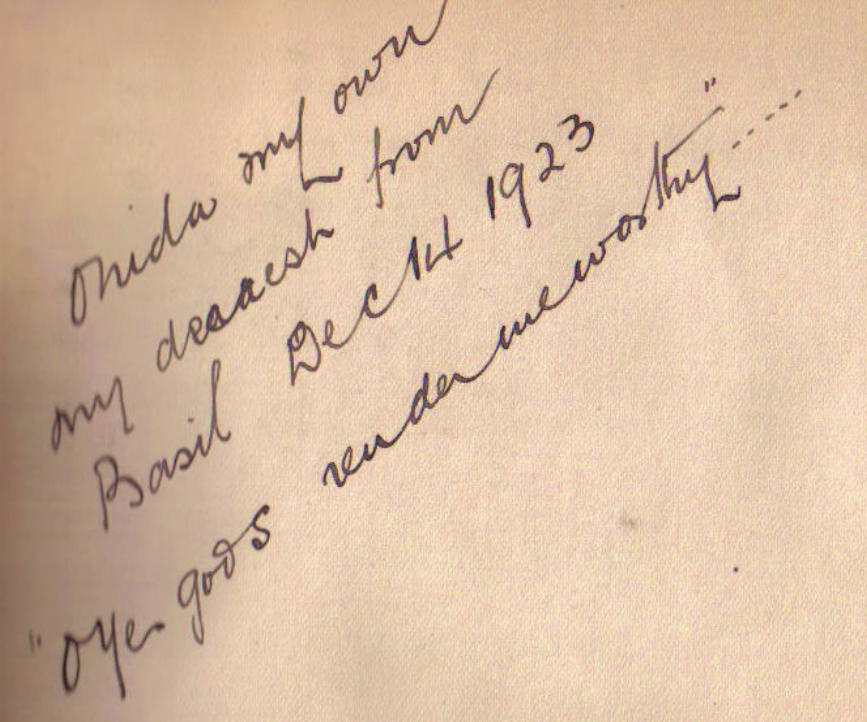 Onida my own
my dearest from
Basil Dec 14 1923
"O ye gods render me worthy" .....